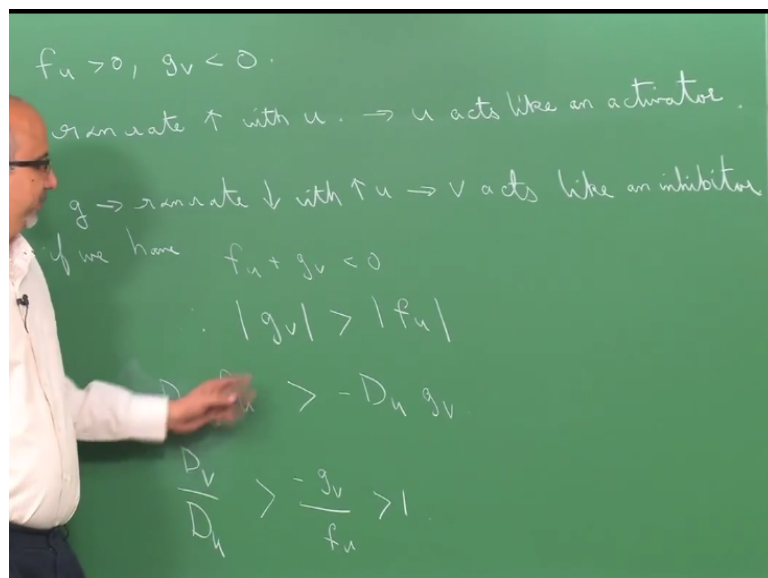 f_u > 0, g_v < 0.
rxn rate ↑ with u. → u acts like an activator.
g → rxn rate ↓ with ↑ u → v acts like an inhibitor
if we have f_u + g_v < 0
∴ |g_v| > |f_u|
> - D_u g_v
D_v / D_u > - g_v / f_u > 1